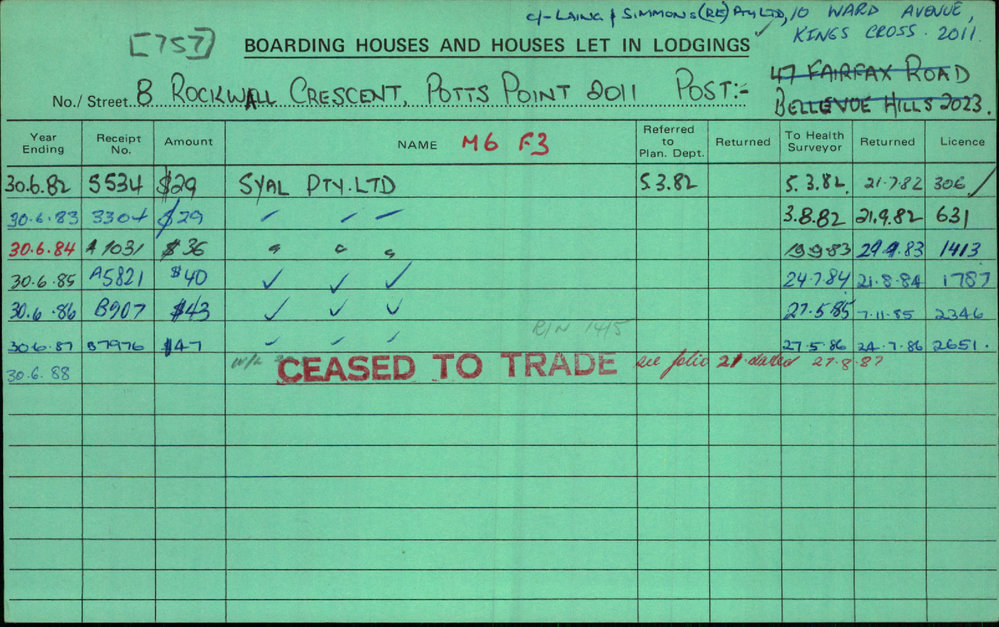 c/- LAING & SIMMONS (RE) PTY LTD, 10 WARD AVENUE,
KINGS CROSS. 2011
[757]
BOARDING HOUSES AND HOUSES LET IN LODGINGS
47 FAIRFAX ROAD
BELLEVUE HILLS 2023.
No./Street. 8 ROCKWALL CRESCENT, POTTS POINT 2011 POST:-
Year Ending Receipt No. Amount NAME M6 F3 Referred to Plan. Dept. Returned To Health Surveyor Returned Licence
30.6.82 5534 $29 SYAL PTY. LTD 5.3.82 5.3.82. 21.7.82 306 /
30.6.83 3304 $29 " " " 3.8.82 21.9.82 631
30.6.84 A1031 $36 " " " 19.9.83 29.9.83 1413
30.6.85 A5821 $40 ✓ ✓ ✓ 24.7.84 21.8.84 1787
30.6.86 B907 $43 ✓ ✓ ✓ 27.5.85 7.11.85 2346
R/N 1415
30.6.87 B7976 $47 ✓ ✓ ✓ 27.5.86 24.7.86 2651.
30.6.88 CEASED TO TRADE see folio 21 dated 27.8.87